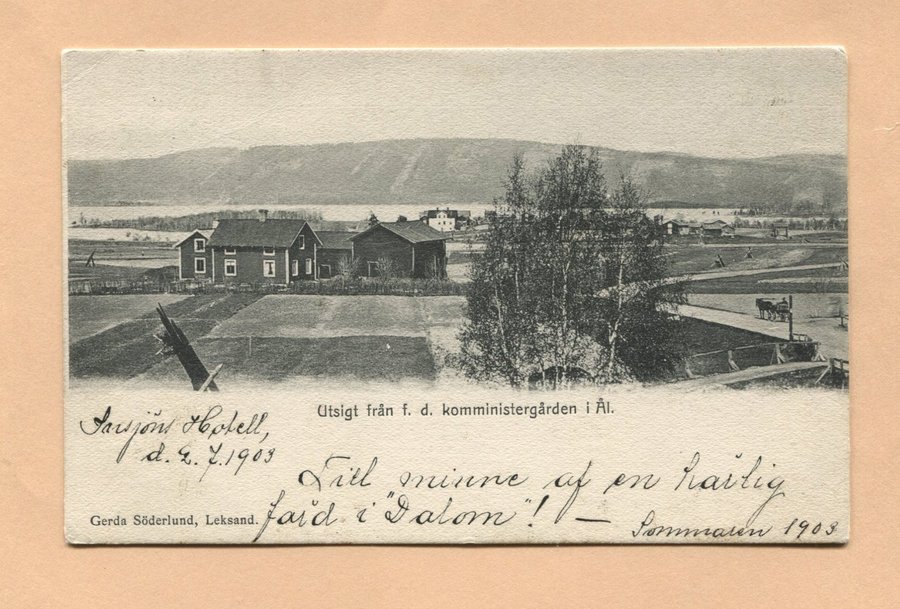 Utsigt från f. d. komministergården i Ål.
Hotell,
d. 2. 7. 1903
Till minne af en härlig
färd i "Dalom"! —
Sommaren 1903
Gerda Söderlund, Leksand.